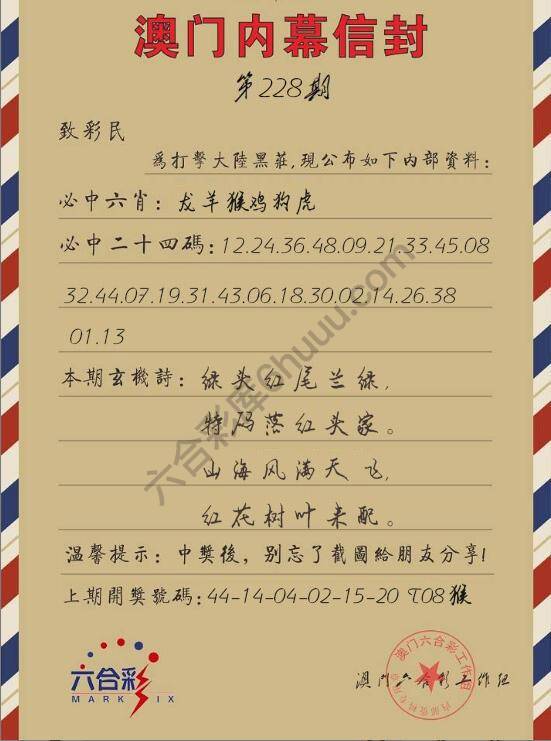 澳门内幕信封
第228期
致彩民
爲打擊大陸黑莊,現公布如下内部資料:
必中六肖:龙羊猴鸡狗虎
必中二十四碼:12.24.36.48.09.21.33.45.08
32.44.07.19.31.43.06.18.30.02.14.26.38
01.13
本期玄機詩:绿头红尾兰绿,
特码落红头家。
山海风满天飞,
红花树叶来配。
温馨提示:中獎後,别忘了截圖給朋友分享!
上期開獎號碼:44-14-04-02-15-20 T08猴
六合彩
MARK SIX
澳门六合彩工作组
澳门六合彩工作组
六合彩库6huuu.com